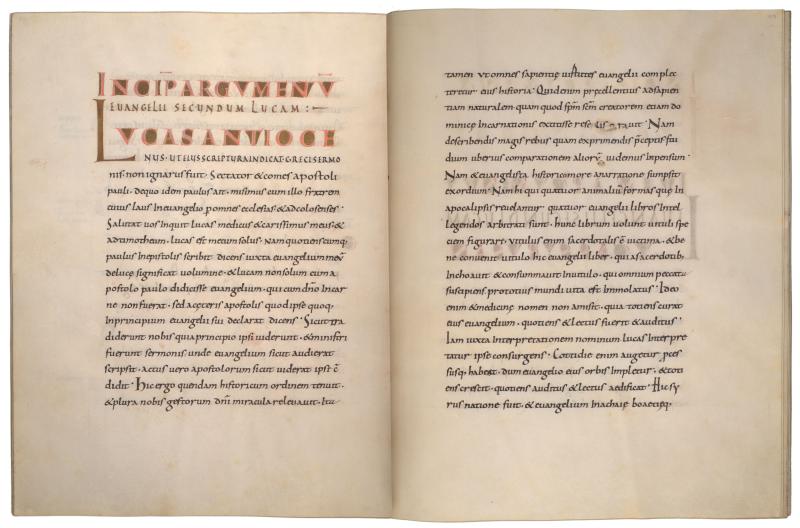 INCIP ARGVMENTV
EVANGELII SECUNDUM LUCAM:
LVCAS ANTIOCHE
NUS· UT EIUS SCRIPTURA INDICAT· GRECI SERMO
nis non ignarus fuit· Sectator & comes apostoli
pauli· de quo idem paulus ait· misimus cum illo fratrem
cuius laus in evangelio p omnes ecclesias· & ad colosenses·
Salutat vos inquit lucas medicus & carissimus meus· &
ad timotheum, lucas est mecum solus· Nam quotienscumq;
paulus in epistolis scribit dicens iuxta evangelium meũ
de lucę significat volumine· & lucam non solum cum a
postolo paulo didicisse evangelium, qui cum dnõ in car
ne non fuerat· sed a ceteris apostolis quod ipse quoq;
in principium evangelii sui declarat dicens· Sicut tra
diderunt nobis qui a principio ipsi viderunt· & ministri
fuerunt sermonis unde evangelium sicut audierat
scripsit· actus vero apostolorum sicut viderat ipse cõ
didit· Hic ergo quendam historicum ordinem tenuit·
& plura nobis gestorum dñi miracula relevavit· Ita
tamen ut omnes sapientię virtutes evangelii complec
teretur eius historia· Quid enim pręcellentius ad sapien
tiam naturalem· quam quod spm scm creatorem etiam do
minicę incarnationis exstitisse reseravit· Nam
describendi magis rebus quam exprimendis pceptis stu
dium uberius comparationem aliorũ videmus inpensum·
Nam & evangelista· historico more a narratione sumpsit
exordium· Nam hi qui quatuor animaliũ formas quę in
apocalipsis revelantur quatuor evangelii libros intel
legendos arbitrati sunt· hunc librum volunt vituli spe
cie figurari· vitulus enim sacerdotalis ẽ victima· & be
ne convenit vitulo hic evangelii liber· qui a sacerdotib;
inchoavit & consummavit in vitulo· qui omnium peccata
suscipiens pro totius mundi vita est immolatus· Ideo
enim & medicinę nomen non amisit· quia totiens curat
eius evangelium· quotiens & lectus fuerit & auditus·
Iam iuxta interpretationem nominum lucas interpre
tatur ipse consurgens· Cottidie enim augetur pces
susq; habet· dum evangelio eius orbis impletur· & toti
ens crescit· quotiens auditus & lectus aedificat· Hic sy
rus natione fuit· & evangelium in achaię boaetięq;